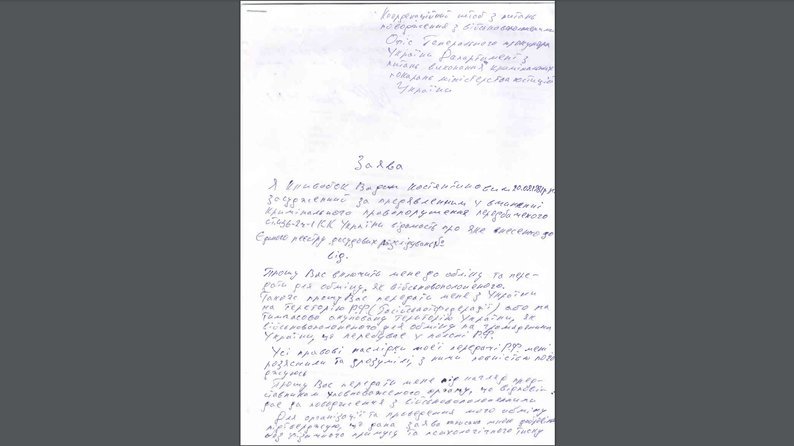 Координаційний штаб з питань
поводження з військовополоненими
Офіс Генерального прокурора
України Департамент з
питань виконання кримінальних
покарань міністерства юстиції
України
Заява
Я Вадим Костянтинович
засуджений за пред'явленним у вчиненні
Кримінального правопорушення передбаченого
КК України відомості про яке внесено до
Єдиного реєстру досудових розслідувань №
від.
Прошу Вас включить мене до обміну та пере-
дати для обміну, як військовополоненого.
Також прошу Вас передати мене з України
на територію РФ (Російської федерації) або на
тимчасово окуповану територію України, як
військовополоненого для обміну на громадянина
України, що перебуває у полоні РФ.
Усі правові наслідки моєї передачі РФ мені
роз'яснили та зрозумілі, з ними повністю пого
джуюсь
Прошу Вас передати мене під нагляд пред-
ставникам уповноваженого органу, що відпові-
дає за поводження з військовополоненими
Для організації та проведення мого обміну
підтверджую, що дана заява писана мною добровільно
без фізичного примусу та психологічного тиску